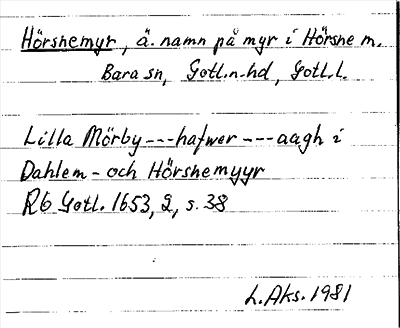 Hörsnemyr, ä. namn på myr i Hörsne m.
Bara sn, Gotl.n.hd, Gotl.l.
Lilla Mörby --- hafwer --- aagh i
Dahlem- och Hörsnemyyr
Rb Gotl. 1653, 2, s. 38
L. Aks. 1981